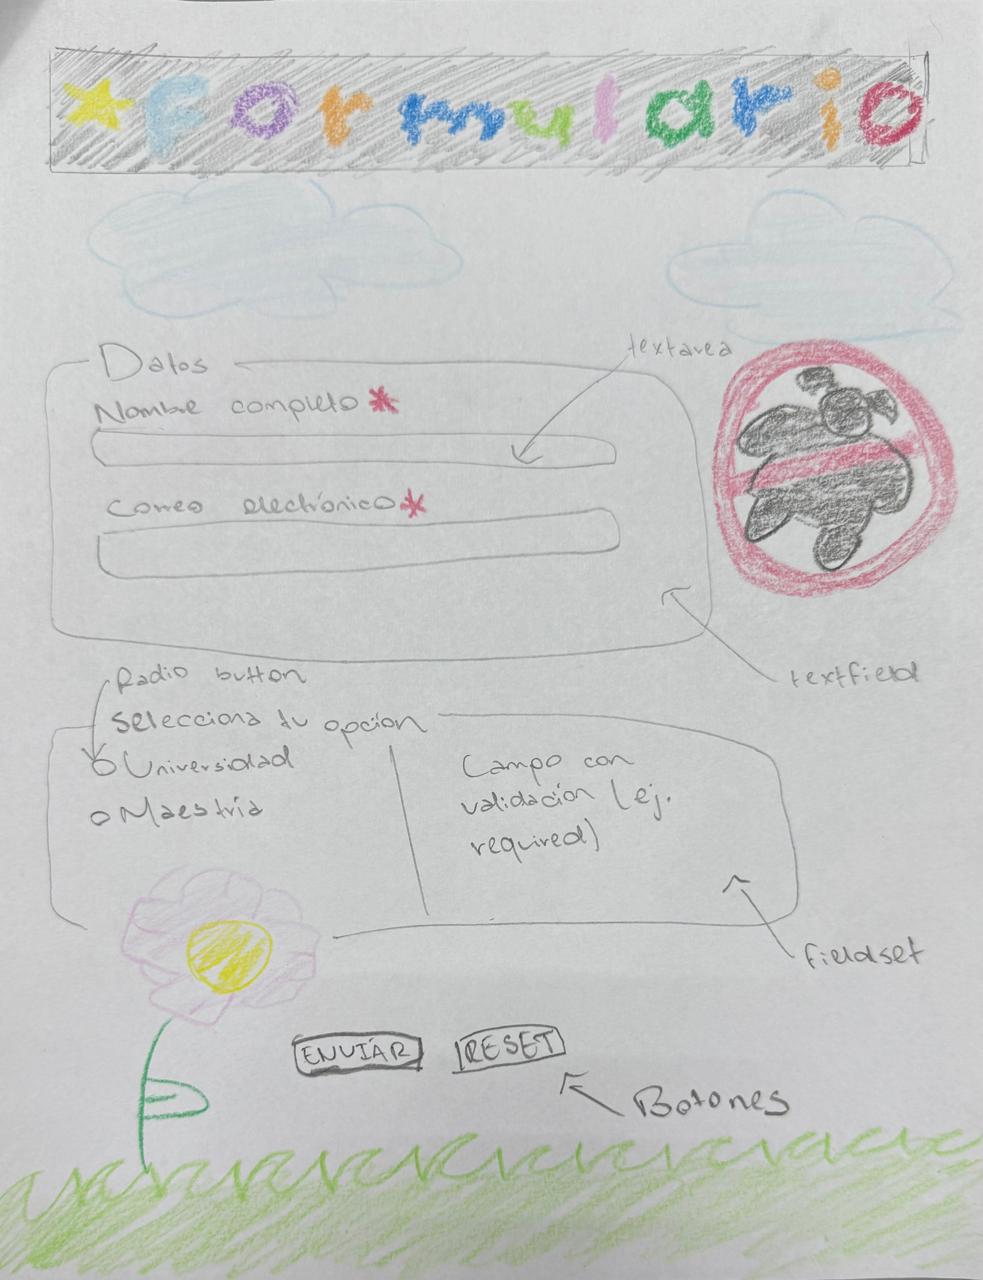 Formulario
Datos
textarea
Nombre completo *
Correo electrónico *
textfield
Radio button
selecciona tu opción
Universidad
Maestría
Campo con
validación (ej.
required)
fieldset
ENVIAR
RESET
Botones